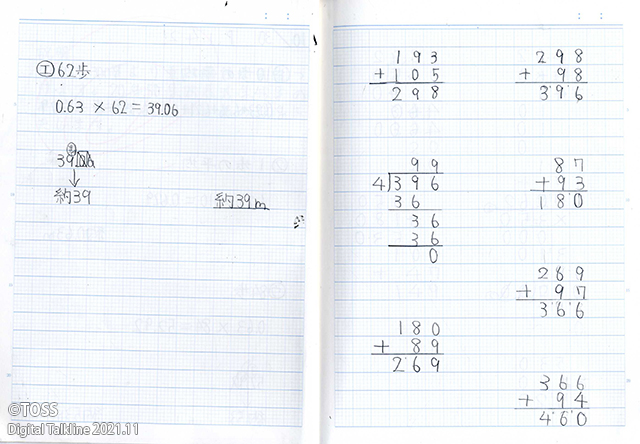 エ 62歩
0.63 × 62 = 39.06
39.06
↓
約39
約39m
193
+105
298
99
4)396
36
36
36
0
180
+ 89
269
298
+ 98
396
87
+93
180
269
+ 97
366
366
+ 94
460
©TOSS
Digital Talkline 2021.11